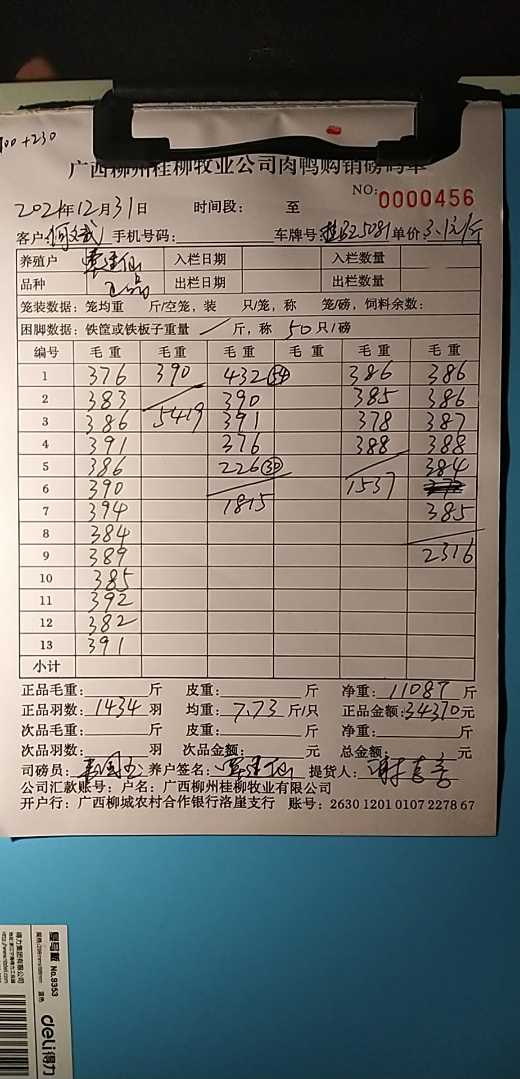 100 +230
广西柳州桂柳牧业公司肉鸭购销磅码单
NO: 0000456
2021年12月31日 时间段: 至
客户: 何文武 手机号码: 车牌号: 5081 单价: 3.1元/斤
养殖户 覃建仙 入栏日期 入栏数量
品种 出栏日期 出栏数量
笼装数据: 笼均重 斤/空笼, 装 只/笼, 称 笼/磅, 饲料余数:
困脚数据: 铁筐或铁板子重量 / 斤, 称 50 只/磅
编号 毛重 毛重 毛重 毛重 毛重 毛重
1 376 390 432 34 386 386
2 383 390 385 386
3 386 5419 391 378 387
4 391 376 388 388
5 386 226 30 384
6 390 1537
7 394 1815 385
8 384
9 389 2316
10 385
11 392
12 382
13 391
小计
正品毛重: 斤 皮重: 斤 净重: 11087 斤
正品羽数: 1434 羽 均重: 7.73 斤/只 正品金额: 34370元
次品毛重: 斤 皮重: 斤 净重: 斤
次品羽数: 羽 次品金额: 元 总金额: 元
司磅员: 养户签名: 覃建仙 提货人:
公司汇款账号: 户名: 广西柳州桂柳牧业有限公司
开户行: 广西柳城农村合作银行洛崖支行 账号: 2630 1201 0107 2278 67
No.9353
deli得力
得力集团有限公司